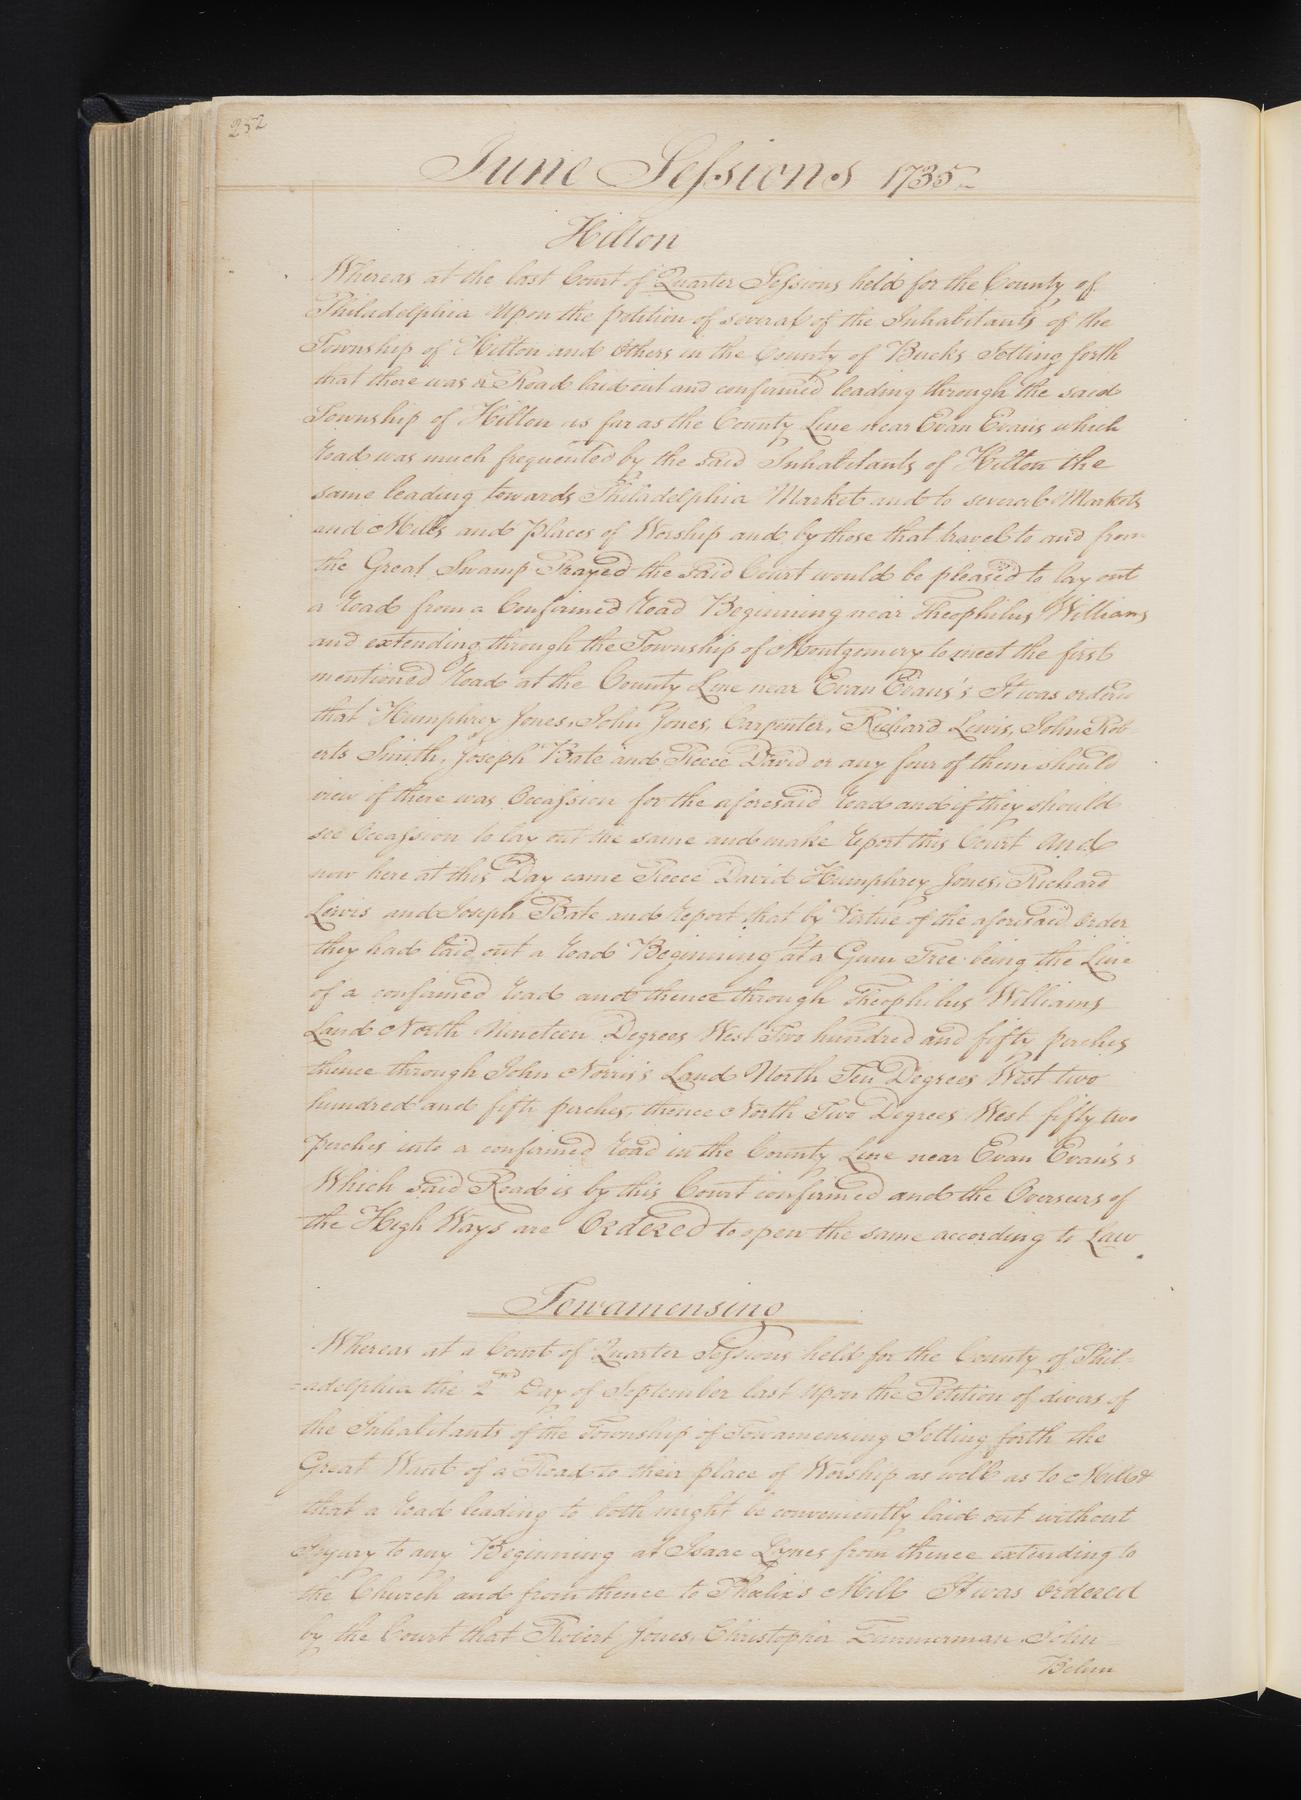 252
June Sessions 1735
Hilton
Whereas at the last Court of Quarter Sessions held for the County of
Philadelphia Upon the petition of several of the Inhabitants of the
Township of Hilton and Others in the County of Bucks Setting forth
that there was a Road laid out and confirmed leading through the said
Township of Hilton as far as the County Line near Evan Evans which
Road was much frequented by the said Inhabitants of Hilton the
same leading towards Philadelphia Market and to several Markets
and Mills and Places of Worship and by those that travel to and from
the Great Swamp Prayed the said Court would be pleased to lay out
a Road from a Confirmed Road Beginning near Theophilus Williams
and extending through the Township of Montgomery to meet the first
mentioned Road at the County Line near Evan Evans's It was ordered
that Humphrey Jones, John Jones, Carpenter, Richard Lewis, John Rob-
erts Smith, Joseph Bate and Reece David or any four of them should
view if there was Occassion for the aforesaid Road and if they should
see Occassion to lay out the same and make Report this Court And
now here at this Day came Reece David Humphrey Jones, Richard
Lewis and Joseph Bate and Report that by Virtue of the aforesaid Order
they had laid out a Road Beginning at a Gum Tree being the Line
of a confirmed Road and thence through Theophilus Williams
Land North Nineteen Degrees West Two hundred and fifty perches
thence through John Norris's Land North Ten Degrees West two
hundred and fifty perches, thence North Two Degrees West fifty two
Perches into a confirmed Road in the County Line near Evan Evans's
Which said Road is by this Court confirmed and the Overseers of
the High Ways are Ordered to open the same according to Law
Towamensing
Whereas at a Court of Quarter Sessions held for the County of Phil-
=adelphia the 2nd Day of September last Upon the Petition of divers of
the Inhabitants of the Township of Towamensing Setting forth the
Great Want of a Road to their place of Worship as well as to Mill &
that a Road leading to both might be conveniently laid out without
Injury to any Beginning at Isaac Lynes from thence extending to
the Church and from thence to Phœlix's Mill It was Ordered
by the Court that Robert Jones, Christopher Zimmerman John